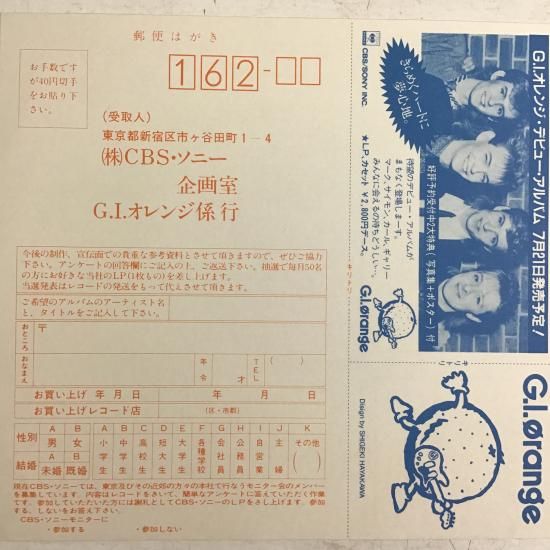 郵便はがき
お手数です
が40円切手
をお貼り下
さい。
162-
(受取人)
東京都新宿区市ヶ谷田町1-4
(株)CBS・ソニー
企画室
G.I.オレンジ係 行
今後の制作、宣伝面での貴重な参考資料とさせて頂きますので、ぜひご協力
下さい。アンケートの回答欄にご記入の上、ご返送下さい。抽選で毎月50名
の方にお好きな当社のLP(1枚もの)を差し上げます。
当選発表はレコードの発送をもって代えさせて頂きます。
ご希望のアルバムのアーティスト名
と、タイトルをご記入して下さい。
おところ
〒
おなまえ
年
令
才
TEL
( )
( )
お買い上げ 年 月 日
年 月 日
お買い上げレコード店
(区・市郡)
性別
A男 B女
A小学生 B中学生 C高校生 D短大生 E大学生 F各種学校 G会社員 H公務員 I自営業 J主婦 Kその他( )
結婚
A未婚 B既婚
現在CBS・ソニーでは、東京及びその近郊の方々の本社で行なうモニター会のメンバー
を募集しています。内容はレコードをきいて、簡単なアンケートに答えていただく作業
です。参加していただいた方には謝礼としてCBS・ソニーのLPをさし上げます。参加す
る、しないをお答え下さい。
CBS・ソニーモニターに
・参加する ・参加しない
キリトリ
G.I.オレンジ・デビュー・アルバム 7月21日発売予定!
好評予約受付中2大特典(写真集+ポスター)付
CBS/SONY INC.
きらめくハートに
夢心地。
待望のデビュー・アルバムが
まもなく登場しまーす。
マーク、サイモン、カール、ギャリー
みんなに会えるの待ちどうしい…!
★LP、カセット ¥2,800円デース。
G.I.orange
キリトリ
G.I.orange
Disign by SHIGEKI HAYAKAWA